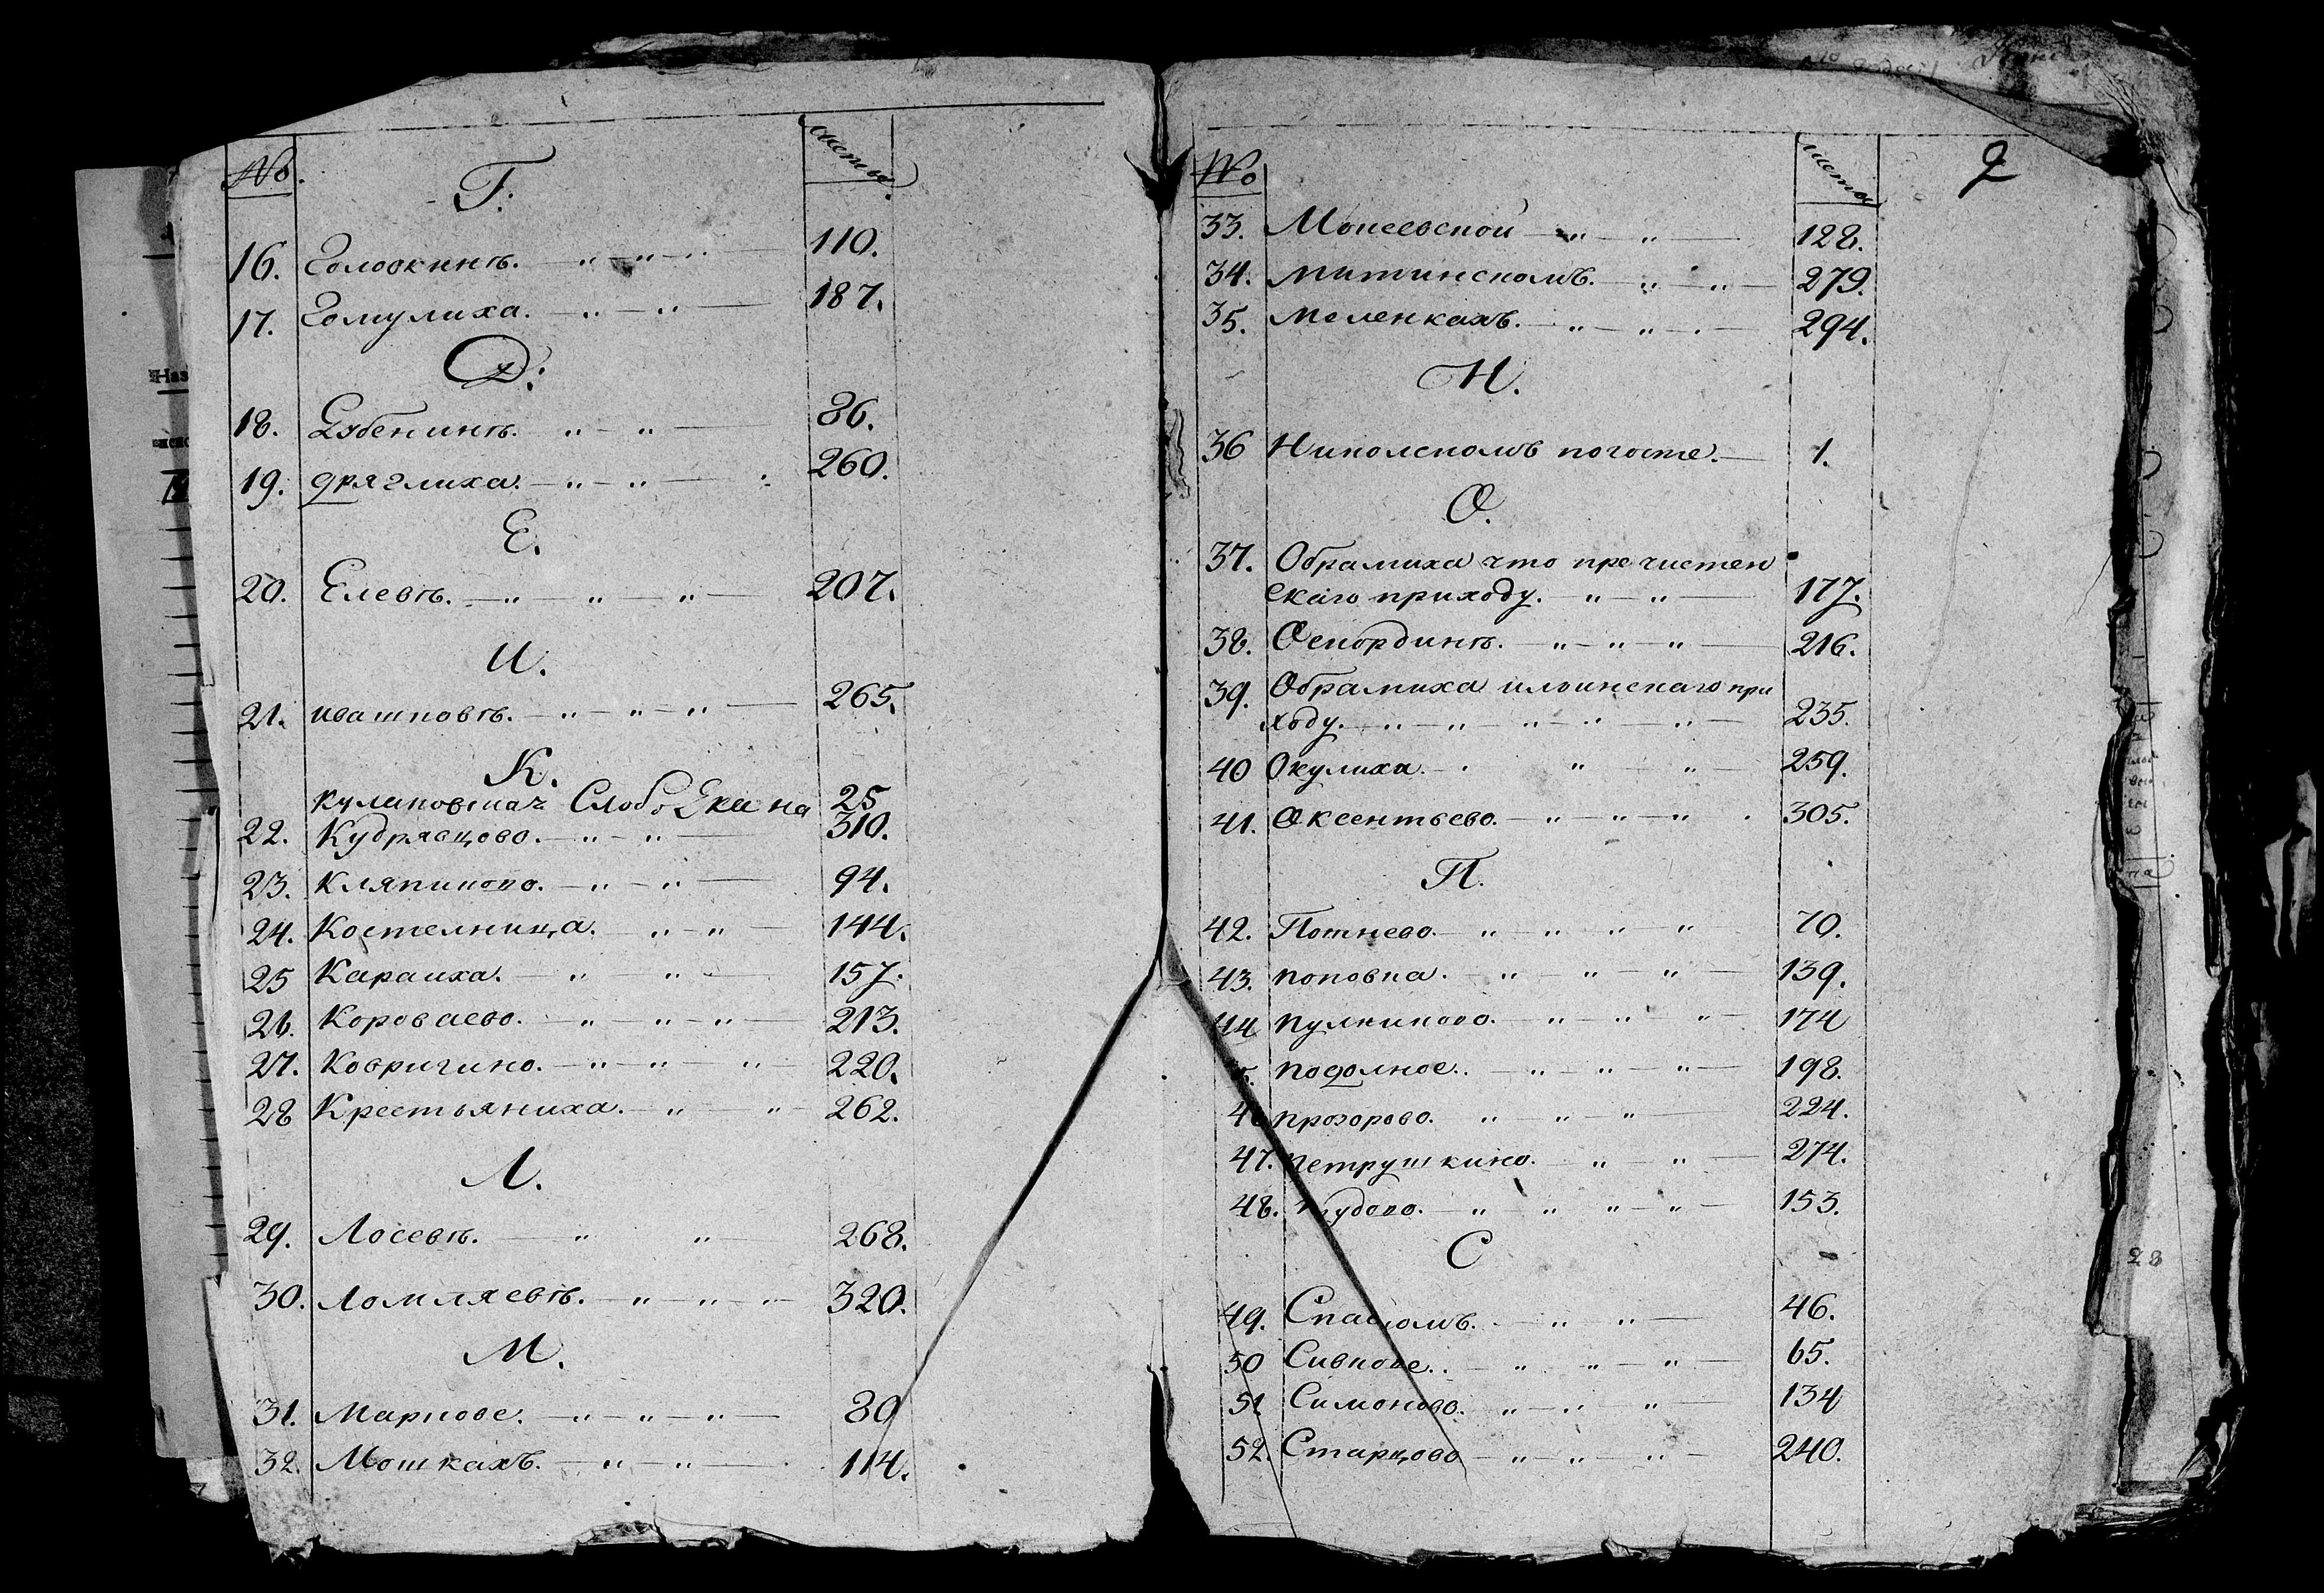 №.
Г.
листы.
16. Голоокинѣ. 110.
17. Гомулиха. 187.
Д.
18. Дубенинѣ. 86.
19. дряглиха. 260.
Е.
20. Елевѣ. 207.
И.
21. ивашковѣ. 265.
К.
куликовская Слободка на 25
22. Кудрявцово. 310.
23. Кляпиково. 94.
24. Костелница. 144.
25 Караиха. 157.
26. Короваево. 213.
27. Ковригино. 220.
28 Крестьяниха. 262.
Л.
29. Лосевѣ. 268.
30. Ломляевѣ. 320.
М.
31. Маркове. 80
32. Мошкахъ. 114.
№
листы
2
33. Мокеевской 128.
34. митинскомъ. 279.
35. меленкахъ. 294.
Н.
36 Николскомъ погосте. 1.
О.
37. Обрамиха что пречистен
скаго приходу. 177.
38. Оскординѣ. 216.
39. Обрамиха илинскаго при
ходу. 235.
40 Окулиха. 259.
41. Оксентьево. 305.
П.
42. Потнево. 70.
43. поповка. 139.
44 пулников. 174
подолное. 198.
46 прозорово. 224.
47. петрушкино. 274.
48. 153.
С
49. Спаском. 46.
50 Сивкове. 65.
51 Симоново. 134
52. Старцово 240.
28